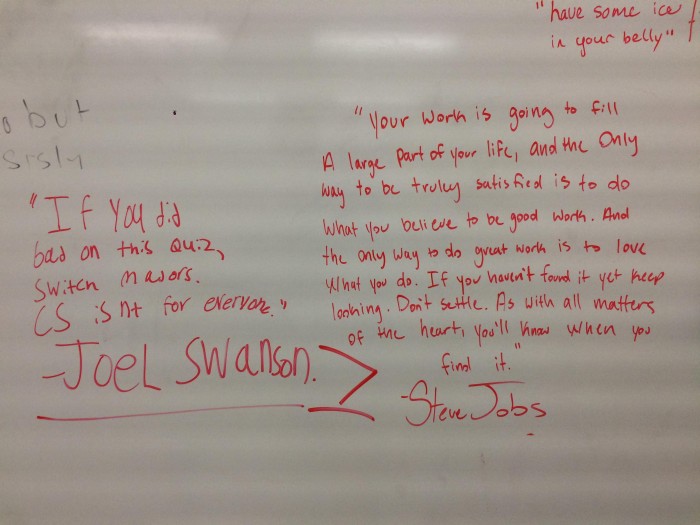 "have some ice
in your belly"
o but
srsly
"If You did
bad on this Quiz,
switch majors.
CS isnt for everyone."
-JOEL SWANSON.
>
"Your work is going to fill
A large part of your life, and the only
way to be truly satisfied is to do
what you believe to be good work. And
the only way to do great work is to love
what you do. If you haven't found it yet keep
looking. Don't settle. As with all matters
of the heart, you'll know when you
find it."
-Steve Jobs